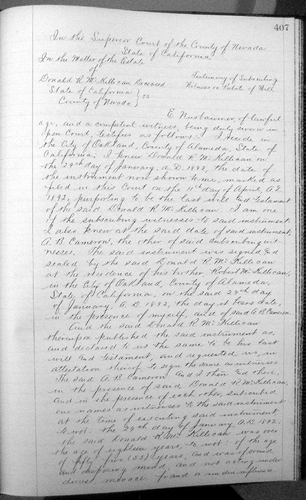 407
In the Superior Court of the County of Nevada
State of California
In the Matter of the Estate
of
Donald R. McKillican Deceased
State of California } ss
County of Nevada
Testimony of Subscribing
Witness on Probate of Will
E. Nusbaumer, of lawful
age, and a competent witness, being duly sworn in
open Court, testifies as follows: I reside in
the City of Oakland, County of Alameda, State of
California; I knew Donald R. McKillican on
the 29th day of January, A.D. 1892, the date of
the instrument now shown to me, marked as
filed in this Court on the 11th day of April, A.D.
1892, purporting to be the last will and Testament
of the said Donald R. McKillican. I am one
of the subscribing witnesses to said instrument
I also knew at the said date of said instrument,
A. B. Cameron, the other of said subscribing wit
nesses. The said instrument was signed and
sealed by the said Donald R. McKillican
at the residence of his brother Robert McKillican,
in the City of Oakland, County of Alameda,
State of California, on the said 29th day
of January, A.D. 1892, the day it bears date,
in the presence of myself, and of said A. B. Cameron
And the said Donald R. McKillican
thereupon published the said instrument as,
and declared to us the same to be his last
will and testament, and requested us, in
attestation thereof to sign the same as witnesses
The said A. B. Cameron and I then and there,
in the presence of said Donald R. McKillican,
and in the presence of each other, subscribed
our names as witnesses to the said instrument
at the time of executing said instrument
to wit: the 29th day of January, A.D. 1892,
the said Donald R. McKillican was over
the age of eighteen years, to wit: of the age
of fifty five (55) years, and was of sound
and disposing mind, and not acting under
duress, menace, fraud or undue influence